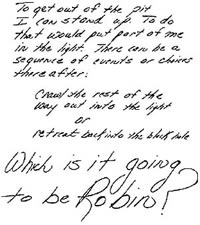 To get out of the pit
I can stand up. To do
that would put part of me
in the light. There can be a
sequence of events or choices
there after:
Crawl the rest of the
way out into the light
or
retreat back into the black hole
Which is it going
to be Robin?